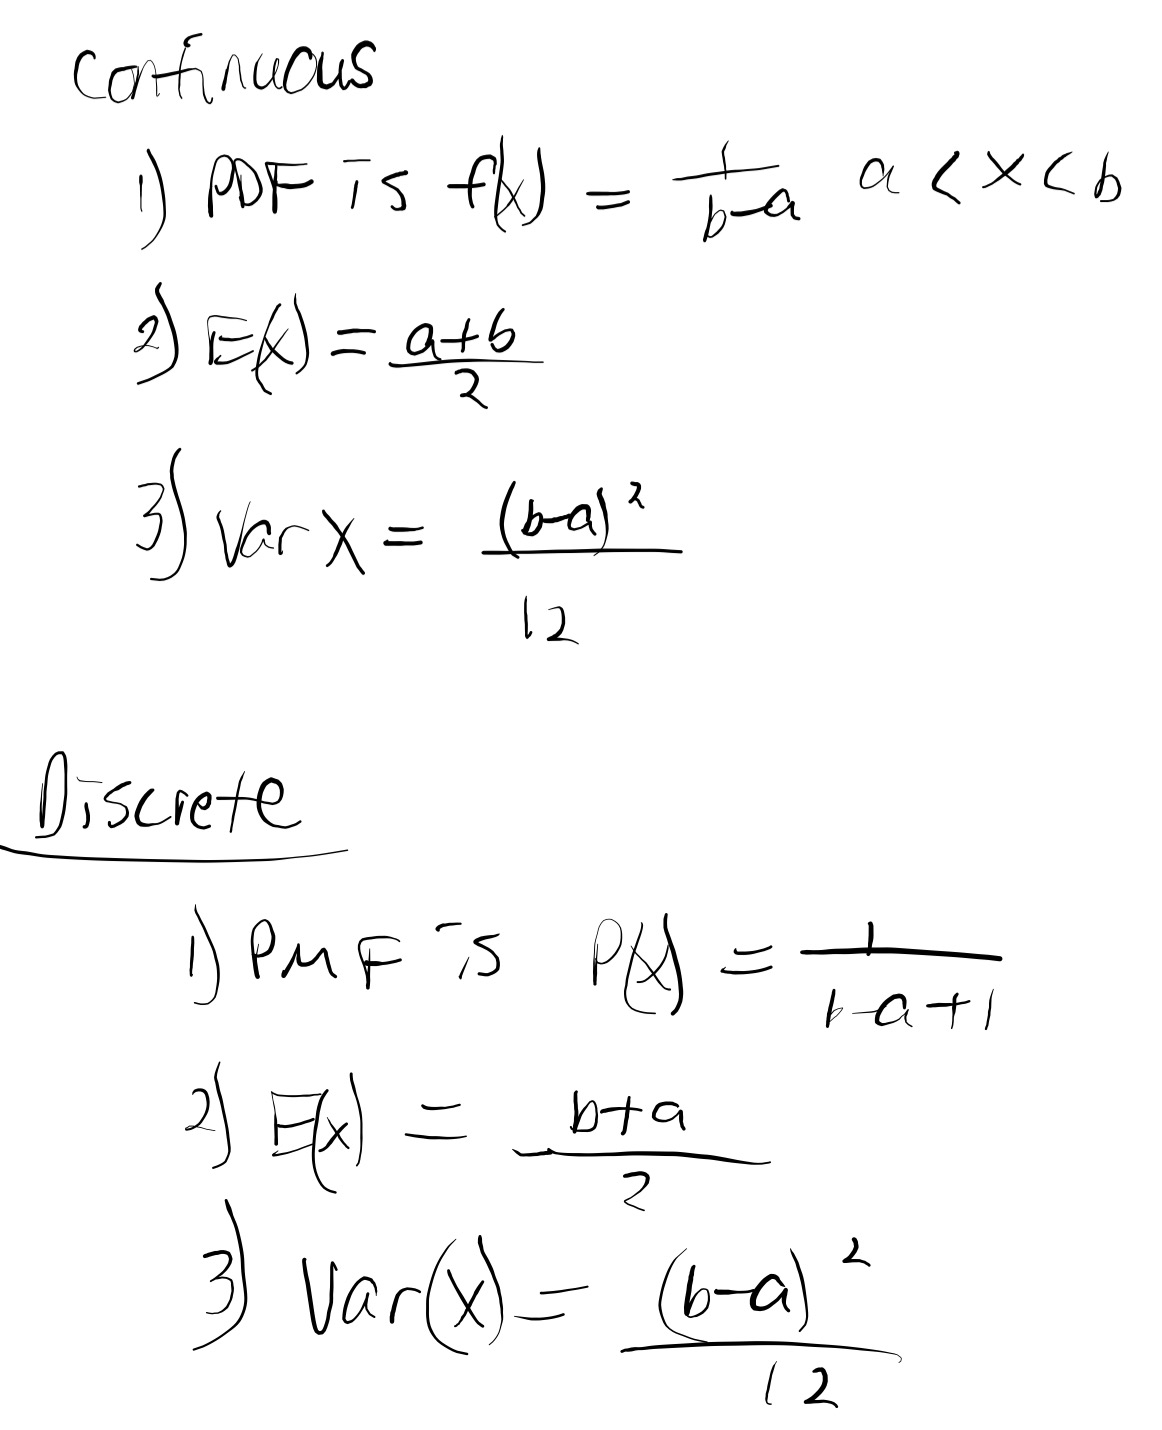 Continuous
1) PDF is f(x) = 1/(b-a) a < x < b
2) E(x) = (a+b)/2
3) Var X = (b-a)²/12
Discrete
1) PMF is P(x) = 1/(b-a+1)
2) E(x) = (b+a)/2
3) Var(x) = (b-a)²/12